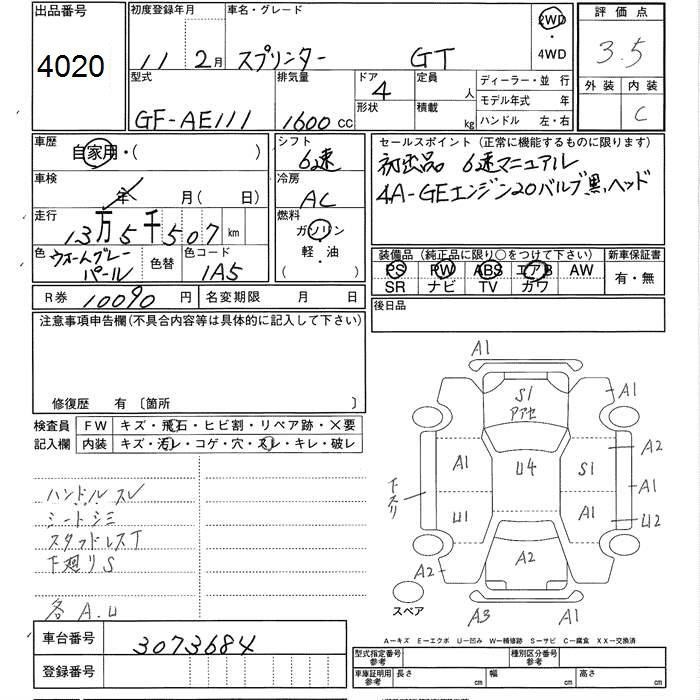 出品番号
4020
初度登録年月
11 2月
車名・グレード
スプリンター GT
2WD
・
4WD
評価点
3.5
外装 内装
C
型式
GF-AE111
排気量
1600 cc
ドア
4
形状
定員
人
積載
kg
ディーラー・並 行
モデル年式 年
ハンドル 左・右
車歴
自家用・( )
車検
年 月( 日)
走行
13万5千507 km
色
ウォームグレーパール
色替
色コード
1A5
シフト
6速
冷房
AC
燃料
ガソリン
・
軽・油
セールスポイント（正常に機能するものに限ります）
初出品 6速マニュアル
4A-GEエンジン20バルブ黒ヘッド
装備品（純正品に限り○をつけて下さい）
新車保証書
PS PW ABS エアB AW
SR ナビ TV カワ
有・無
後日品
R券 10090 円
名変期限 月 日
注意事項申告欄（不具合内容等は具体的に記入して下さい）
修復歴 有 〔箇所 〕
検査員
記入欄
FW キズ・飛石・ヒビ割・リペア跡・×要
内装 キズ・汚レ・コゲ・穴・スレ・キレ・破レ
ハンドルスレ
シートシミ
スタッドレスT
下廻りS
各A.U
A1
S1
アアセ
A1
A1
U4
S1
A2
A1
下スリ
U1
A1
U2
A2
A2
スペア
A3
A1
A－キズ E－エクボ U－凹み W－補修跡 S－サビ C－腐食 XX－交換済
車台番号
3073684
登録番号
型式指定番号
参考
種別区分番号
参考
車庫証明用
参考
長さ cm
幅 cm
高さ cm